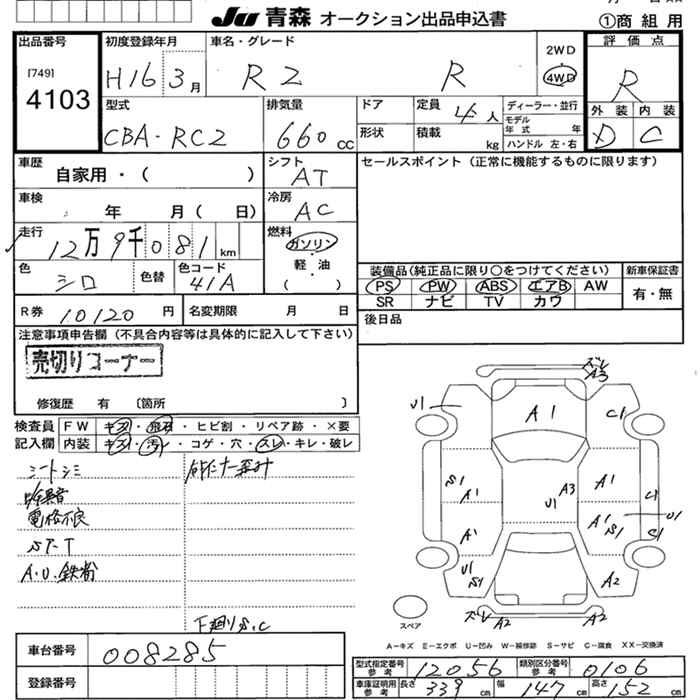 JU 青森 オークション出品申込書
①商組用
出品番号
[749]
4103
初度登録年月
H16 3月
車名・グレード
R2 R
2WD
4WD
評価点
R
外装 内装
D C
型式
CBA-RC2
排気量
660 cc
ドア
形状
定員 4人
積載 kg
ディーラー・並行
モデル年式 年
ハンドル 左・右
車歴
自家用・( )
シフト
AT
セールスポイント (正常に機能するものに限ります)
車検
年 月( 日)
冷房
AC
走行
12万9千081km
燃料
ガソリン
・
軽・油
・
( )
色
シロ
色替
色コード
41A
装備品(純正品に限り○をつけてください)
PS PW ABS エアB AW
SR ナビ TV カワ
新車保証書
有・無
R券 10120円
名変期限 月 日
後日品
注意事項申告欄 (不具合内容等は具体的に記入して下さい)
売切りコーナー
修復歴 有 〔箇所 〕
検査員記入欄
FW キズ・飛石・ヒビ割・リペア跡・×要
内装 キズ・汚レ・コゲ・穴・スレ・キレ・破レ
シートシミ
電格不良
A.U.鉄粉
下廻りS.C
ズレ
A3
U1
A1
C1
S1
A1
A3
U1
A1
C1
A1
S1
U1
C1
A1
U1
S1
A2
ズレ
A2
A2
スペア
A=キズ E=エクボ U=凹み W=補修跡 S=サビ C=腐食 XX=交換済
車台番号 008285
登録番号
型式指定番号参考 12056
類別区分番号参考 0106
車庫証明用参考 長さ 339cm 幅 147cm 高さ 152cm